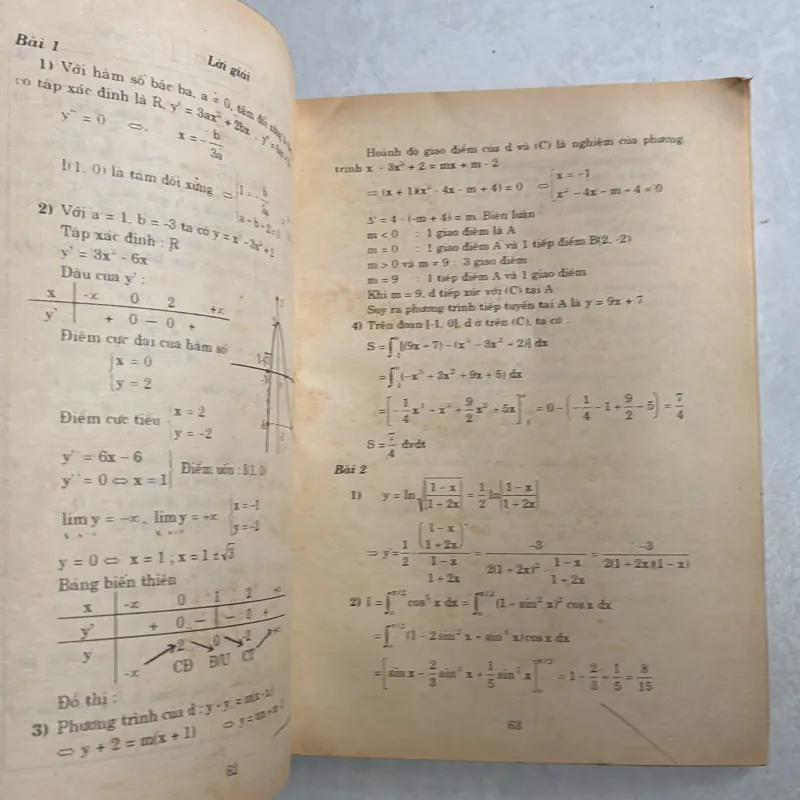 Bài 1
Lời giải
1) Với hàm số bậc ba, a ≠ 0, tâm đối xứng
co tập xác định là R, y' = 3ax² + 2bx
y'' = 0 ⇔ x = - b/3a
I(1, 0) là tâm đối xứng ⇔ { 1 = - b/3a
a + b + 2 = 0
2) Với a = 1, b = -3 ta có y = x³ - 3x² + 2
Tập xác định : R
y' = 3x² - 6x
Dấu của y' :
x -∞ 0 2 +∞
y' + 0 − 0 +
Điểm cực đại của hàm số
{ x = 0
y = 2
Điểm cực tiểu { x = 2
y = -2
y'' = 6x - 6
y'' = 0 ⇔ x = 1 } Điểm uốn : I(1, 0)
lim y = -∞, lim y = +∞ { x = -1
y = -2
y = 0 ⇔ x = 1 ; x = 1 ± √3
Bảng biến thiên
x -∞ 0 1 2 +∞
y' + 0 − − 0 +
y -∞ 2 0 -2 +∞
CĐ Đ/U CT
Đồ thị :
3) Phương trình của d :
⇔ y + 2 = m(x + 1) ⇔ y = mx + m - 2
62
Hoành độ giao điểm của d và (C) là nghiệm của phương
trình x³ - 3x² + 2 = mx + m - 2
⇔ (x + 1)(x² - 4x - m + 4) = 0 ⇔ { x = -1
x² - 4x - m + 4 = 0
Δ' = 4 - (-m + 4) = m. Biện luận :
m < 0 : 1 giao điểm là A
m = 0 : 1 giao điểm A và 1 tiếp điểm B(2, -2)
m > 0 và m ≠ 9 : 3 giao điểm
m = 9 : 1 tiếp điểm A và 1 giao điểm
Khi m = 9, d tiếp xúc với (C) tại A
Suy ra phương trình tiếp tuyến tại A là y = 9x + 7
4) Trên đoạn [-1, 0], d ở trên (C), ta có :
S = ∫[(9x + 7) − (x³ − 3x² + 2)] dx
= ∫(-x³ + 3x² + 9x + 5) dx
= [ - 1/4 x⁴ + x³ + 9/2 x² + 5x ] = 0 - ( - 1/4 - 1 + 9/2 - 5 ) = 7/4
S = 7/4 đvdt
Bài 2
1) y = ln √|1 - x / 1 + 2x| = 1/2 ln |1 - x / 1 + 2x|
⇒ y' = 1/2 · (1 - x / 1 + 2x)' / (1 - x / 1 + 2x) = -3 / (2(1 + 2x)² · 1 - x / 1 + 2x) = -3 / 2(1 + 2x)(1 - x)
2) I = ∫₀^π/2 cos⁵ x dx = ∫₀^π/2 (1 - sin² x)² cos x dx
= ∫₀^π/2 (1 - 2sin² x + sin⁴ x) cos x dx
= [ sin x - 2/3 sin³ x + 1/5 sin⁵ x ]₀^π/2 = 1 - 2/3 + 1/5 = 8/15
63